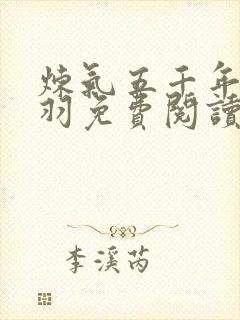 煉氣五千年
羽免費閱讀
李溪芮